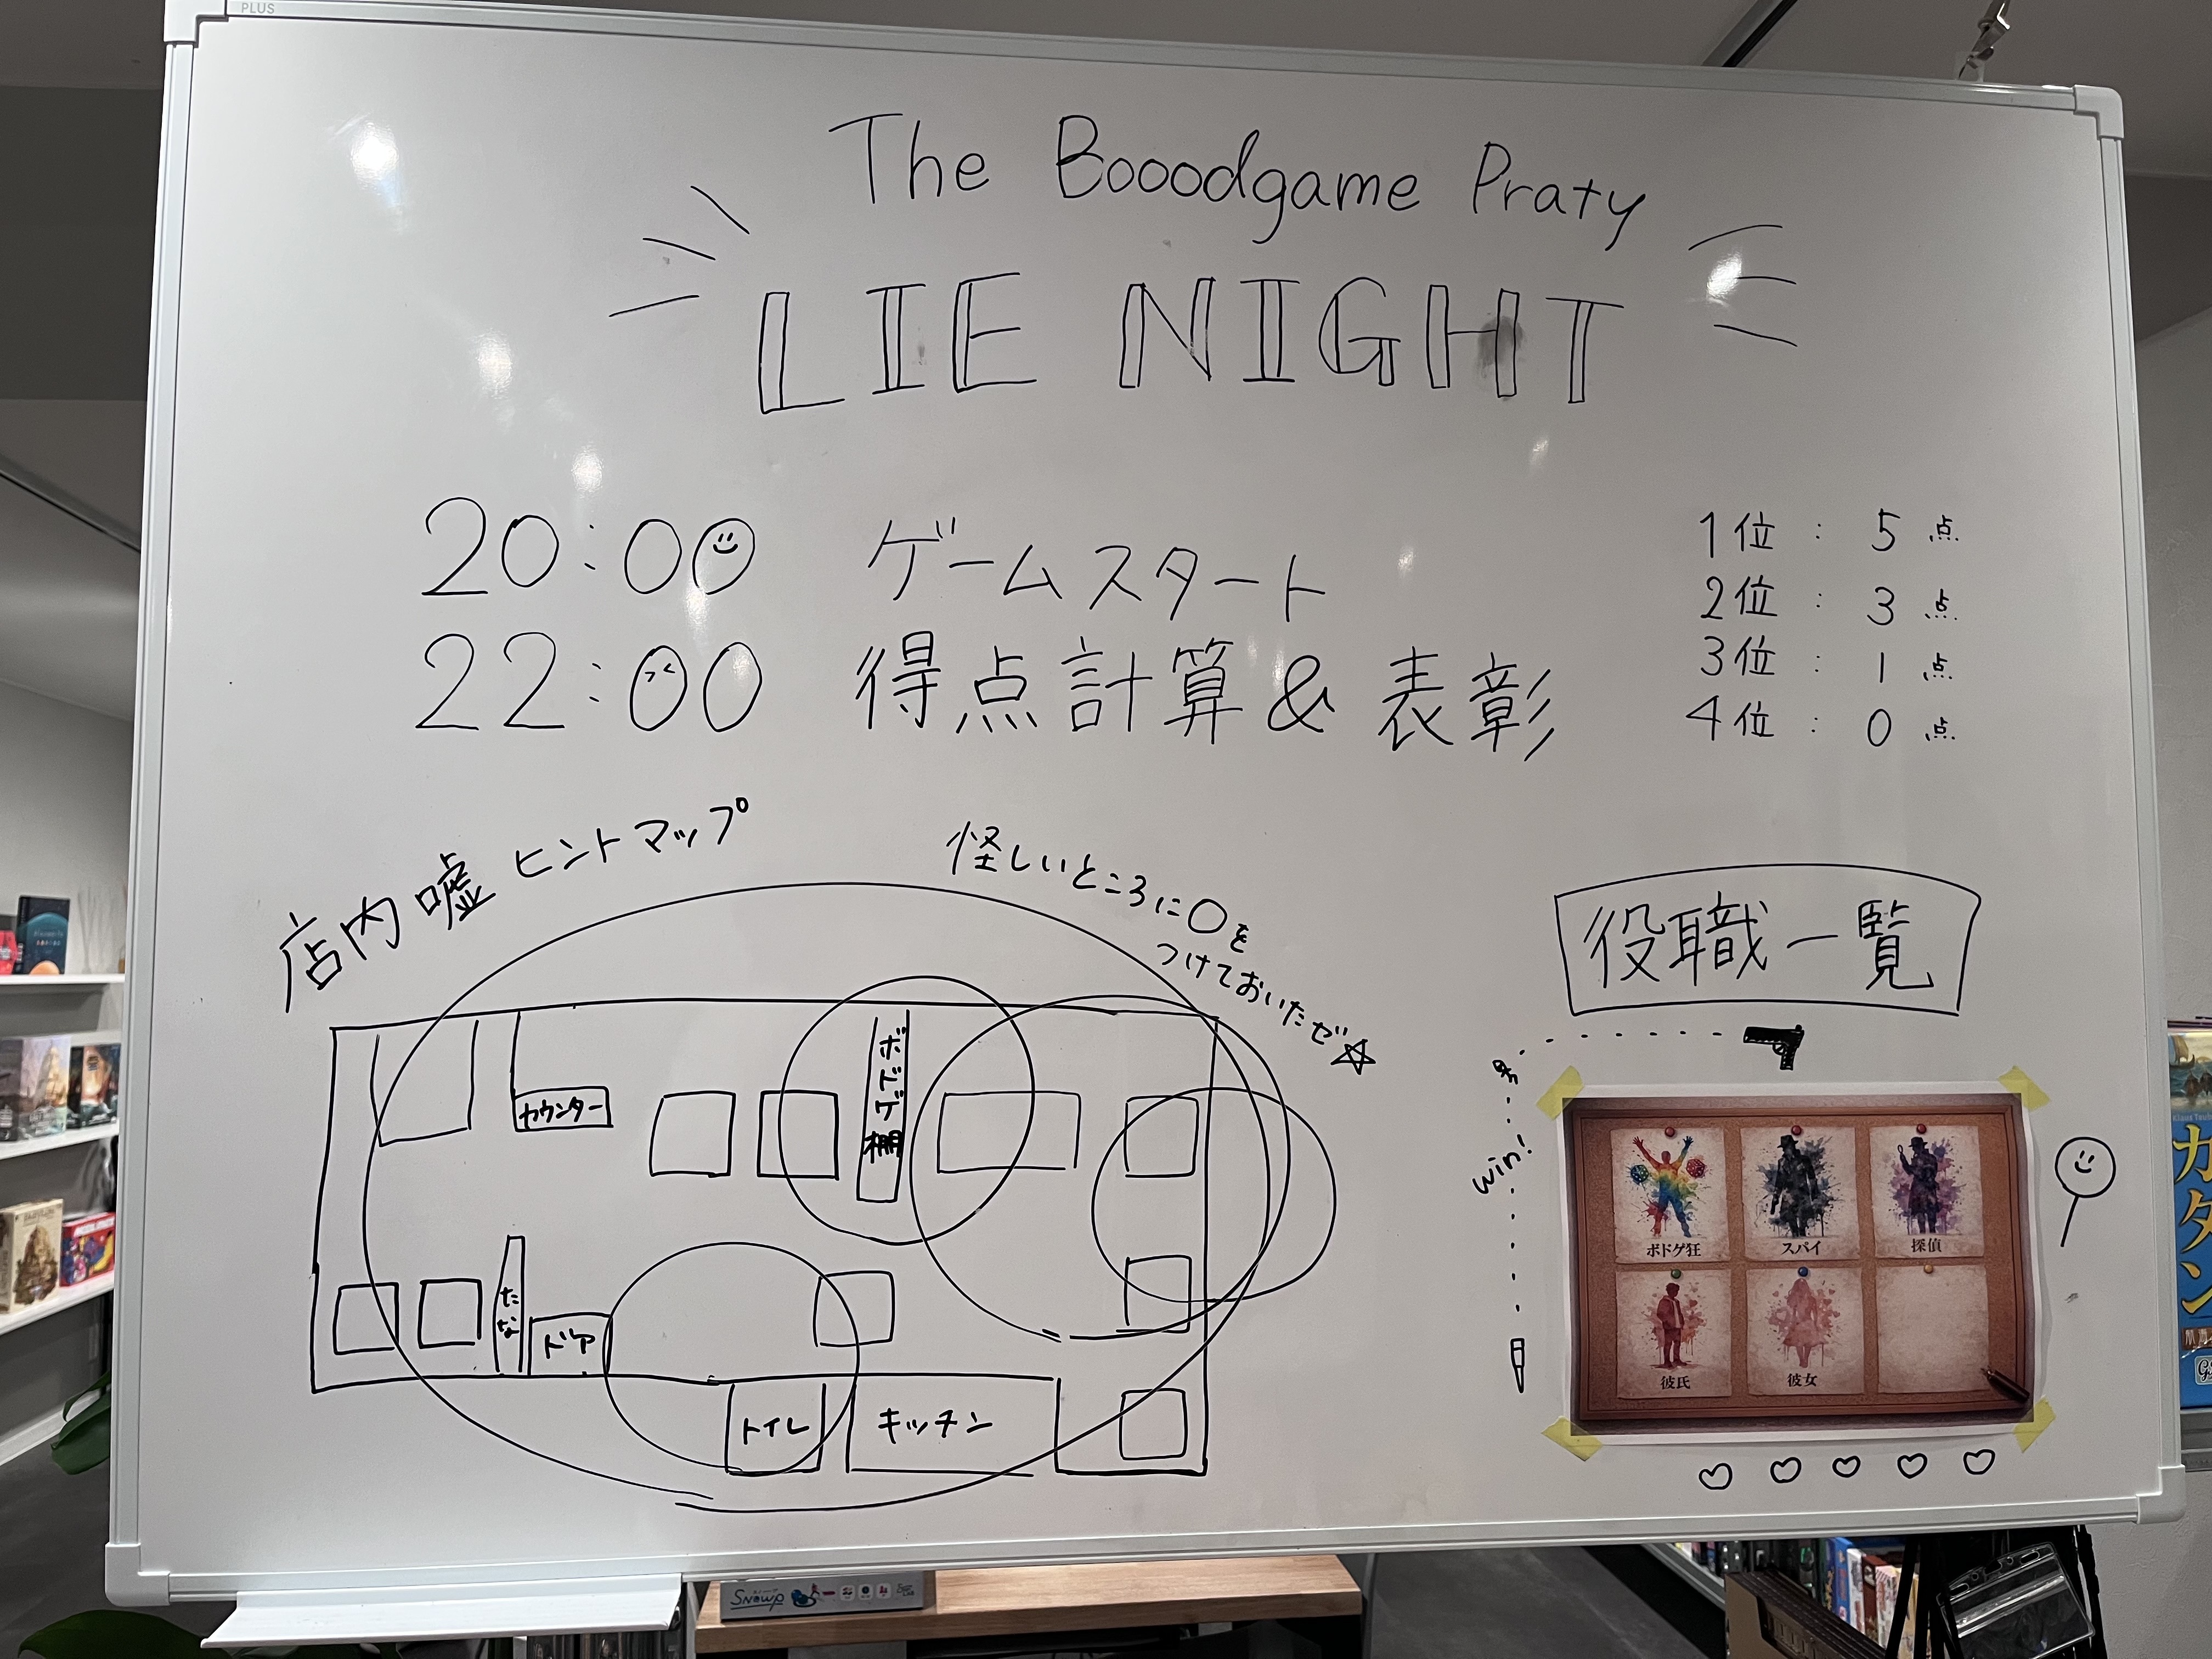 PLUS
The Booodgame Praty
LIE NIGHT
20:00 ゲームスタート
22:00 得点計算&表彰
1位 : 5点
2位 : 3点
3位 : 1点
4位 : 0点
店内嘘ヒントマップ
怪しいところに○を
つけておいたゼ☆
カウンター
ボドゲ棚
たな
ドア
トイレ
キッチン
役職一覧
win!
ボドゲ狂
スパイ
探偵
彼氏
彼女
カタン
Snowp